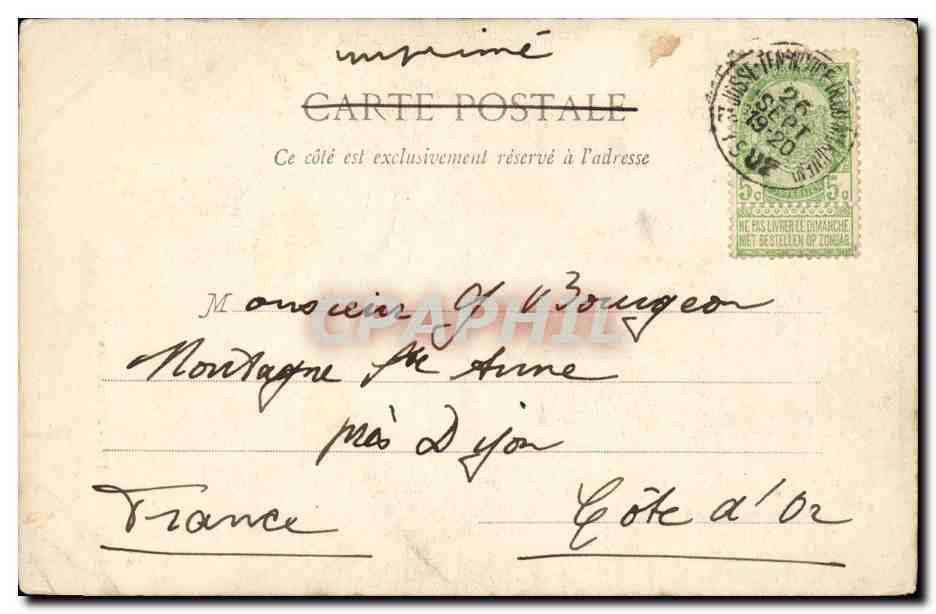 imprimé
CARTE POSTALE
Ce côté est exclusivement réservé à l'adresse
26
SEPT
19-20
5c 5c
NE PAS LIVRER LE DIMANCHE
NIET BESTELLEN OP ZONDAG
Monsieur G Bourgeon
CPAPHIL
Montagne Ste Anne
près Dijon
France Côte d'Or